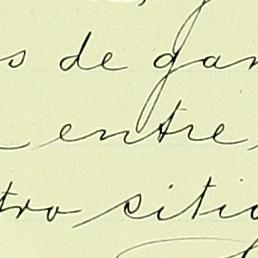 s de gan
entre
tro sitio